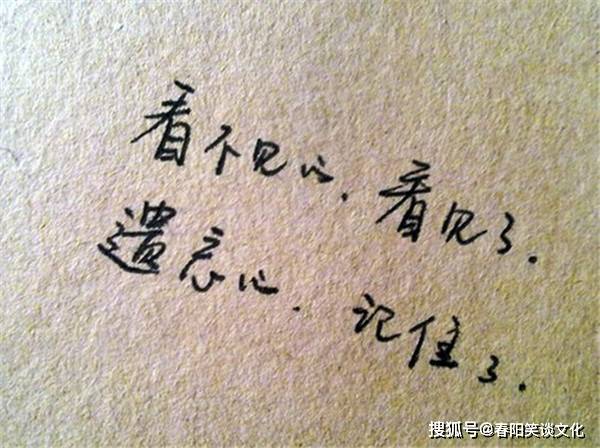 看不见的，看见了。
遺忘的，记住了。
搜狐号@春阳笑谈文化